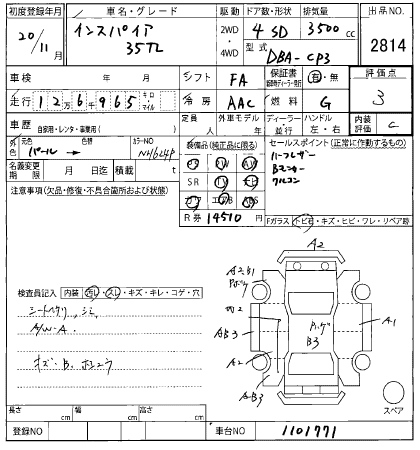 初度登録年月 車名・グレード 駆動 ドア数・形状 排気量 出品NO
20/11月 インスパイア 35TL 2WD・4WD 4 SD 3500cc 2814
型式 DBA-CP3
車検 年 月 シフト FA 保証書 有・無 評価点
走行 12万6千965 キロ マイル 冷房 AAC 燃料 G 3
車歴 自家用・レンタ・事業用( ) 定員 人 外車モデル 年 ディーラー・並行 ハンドル 左・右 内装評価 C
外色 元色 パール → 色替 カラーNO NH624P 装備品(純正品に限る) セールスポイント(正常に作動するもの)
名義変更期限 月 日迄 積載 t SR
ハーフレザー
Bモニター
クルコン
注意事項(欠品・修復・不具合箇所および状態)
R券 14510円 Fガラス トビ石・キズ・ヒビ・ワレ・リペア跡
A2
検査員記入 内装 汚レ・スレ・キズ・キレ・コゲ・穴
シートヘタリ、シミ
A/W・A
キズ・B.
AB3
A2
A1
B3
AB3
スペア
長さ cm 幅 cm 高さ cm
登録NO 車台NO 1101771